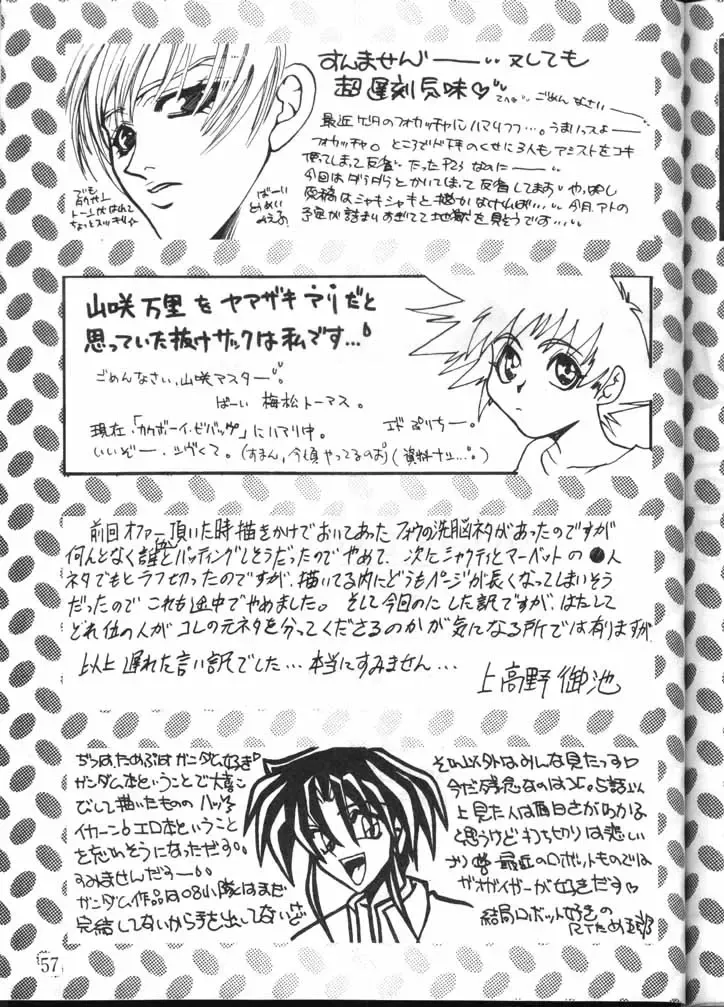 すんませんーー 又しても
超遅刻気味♡ ごめんなさいーー
最近 のフォカッチャにハマりつつ…。うまいっスよー
フォカッチャ。ところで のくせに3人もアシストをコキ
使ってしまって反省 だったP23なのにーー
今回はダラダラとかいてしまって反省してます やっぱし
原稿はシャキシャキと描かなければ… 今月アトの
予定が詰まりすぎてて地獄を見そうです…
でも
トーンがはれて
ちょっとスッキリ
ばーい
とうめい
みえる。
山咲 万里 を ヤマザキ マリ だと
思っていた抜けサックは私です…
ごめんなさい、山咲マスター。
ばーい 梅松トーマス。
現在、「カウボーイ・ビバップ」にハマリ中。
いいぞー。シヴくて。(すまん、今頃やってるのお)(資料ナシ…。)
エド ぷりちー。
前回オファー頂いた時描きかけでおいてあったフォウの洗脳ネタがあったのですが
何んとなく誰かとバッティングしそうだったのでやめて、次にシャクティとマーベットの●人
ネタでもとラフ切ったのですが、描いてる内にどうもページが長くなってしまいそう
だったので これも途中でやめました。そして今回のにした訳ですが、はたして
どれ位の人が コレの元ネタを分ってくださるのかが気になる所では有りますが
以上 遅れた言い訳でした…本当にすみません…
上高野 御池
ぢつはためぶはガンダム好き
ガンダム本ということで大喜
びして描いたものの ハッ
イカーン エロ本ということ
を忘れそうになっただす
すみませんだすー
ガンダム作品は08小隊はまだ
完結してないから手を出してないけど
それ以外はみんな見たっす
今だ残念なのは 。5話以
上見た人は面白さがわかる
と思うけど打ち切りは悲しい
最近のロボットものでは
ガオガイガーが好きだす♡
結局ロボット好きの
RTため五郎
57